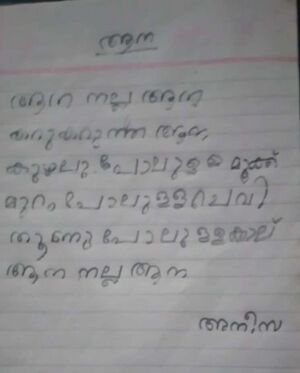 ആന
ആന നല്ല ആന
കറുകറുത്ത ആന
കുഴലു പോലുള്ള മൂക്ക്
മുറം പോലുള്ള ചെവി
തൂണു പോലുള്ള കാല്
ആന നല്ല ആന
അനീസ